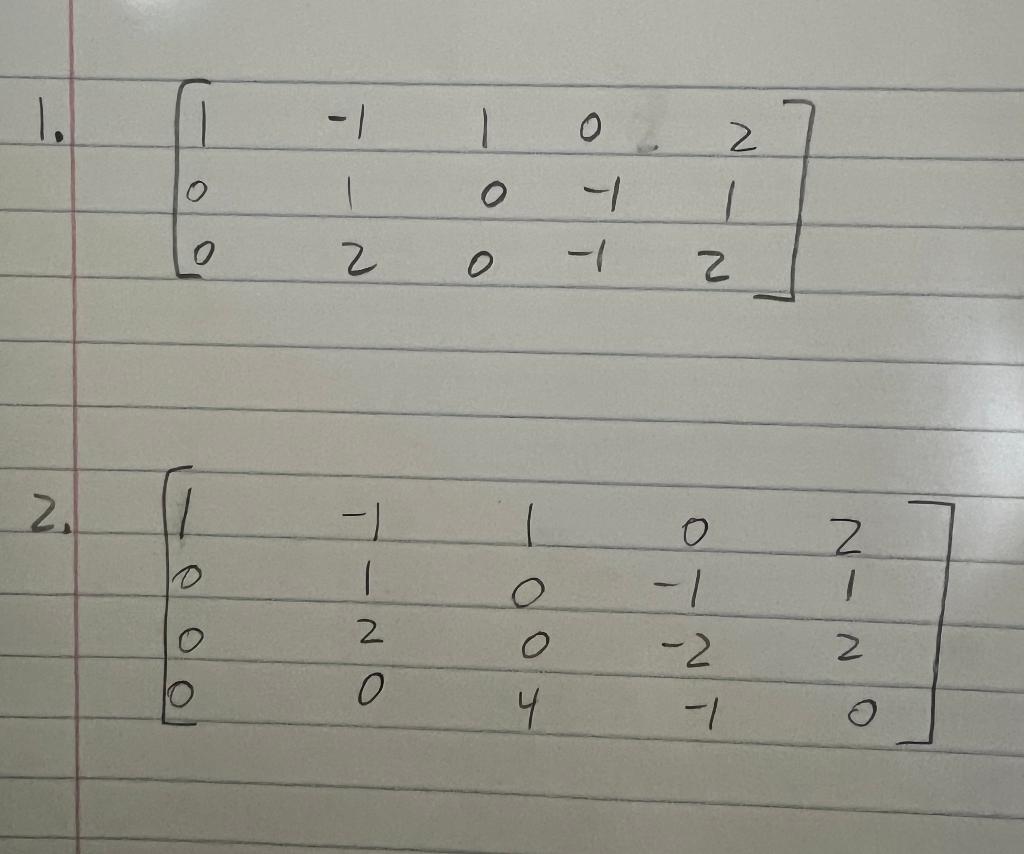 1. 1 -1 1 0 2
0 1 0 -1 1
0 2 0 -1 2
2. 1 -1 1 0 2
0 1 0 -1 1
0 2 0 -2 2
0 0 4 -1 0